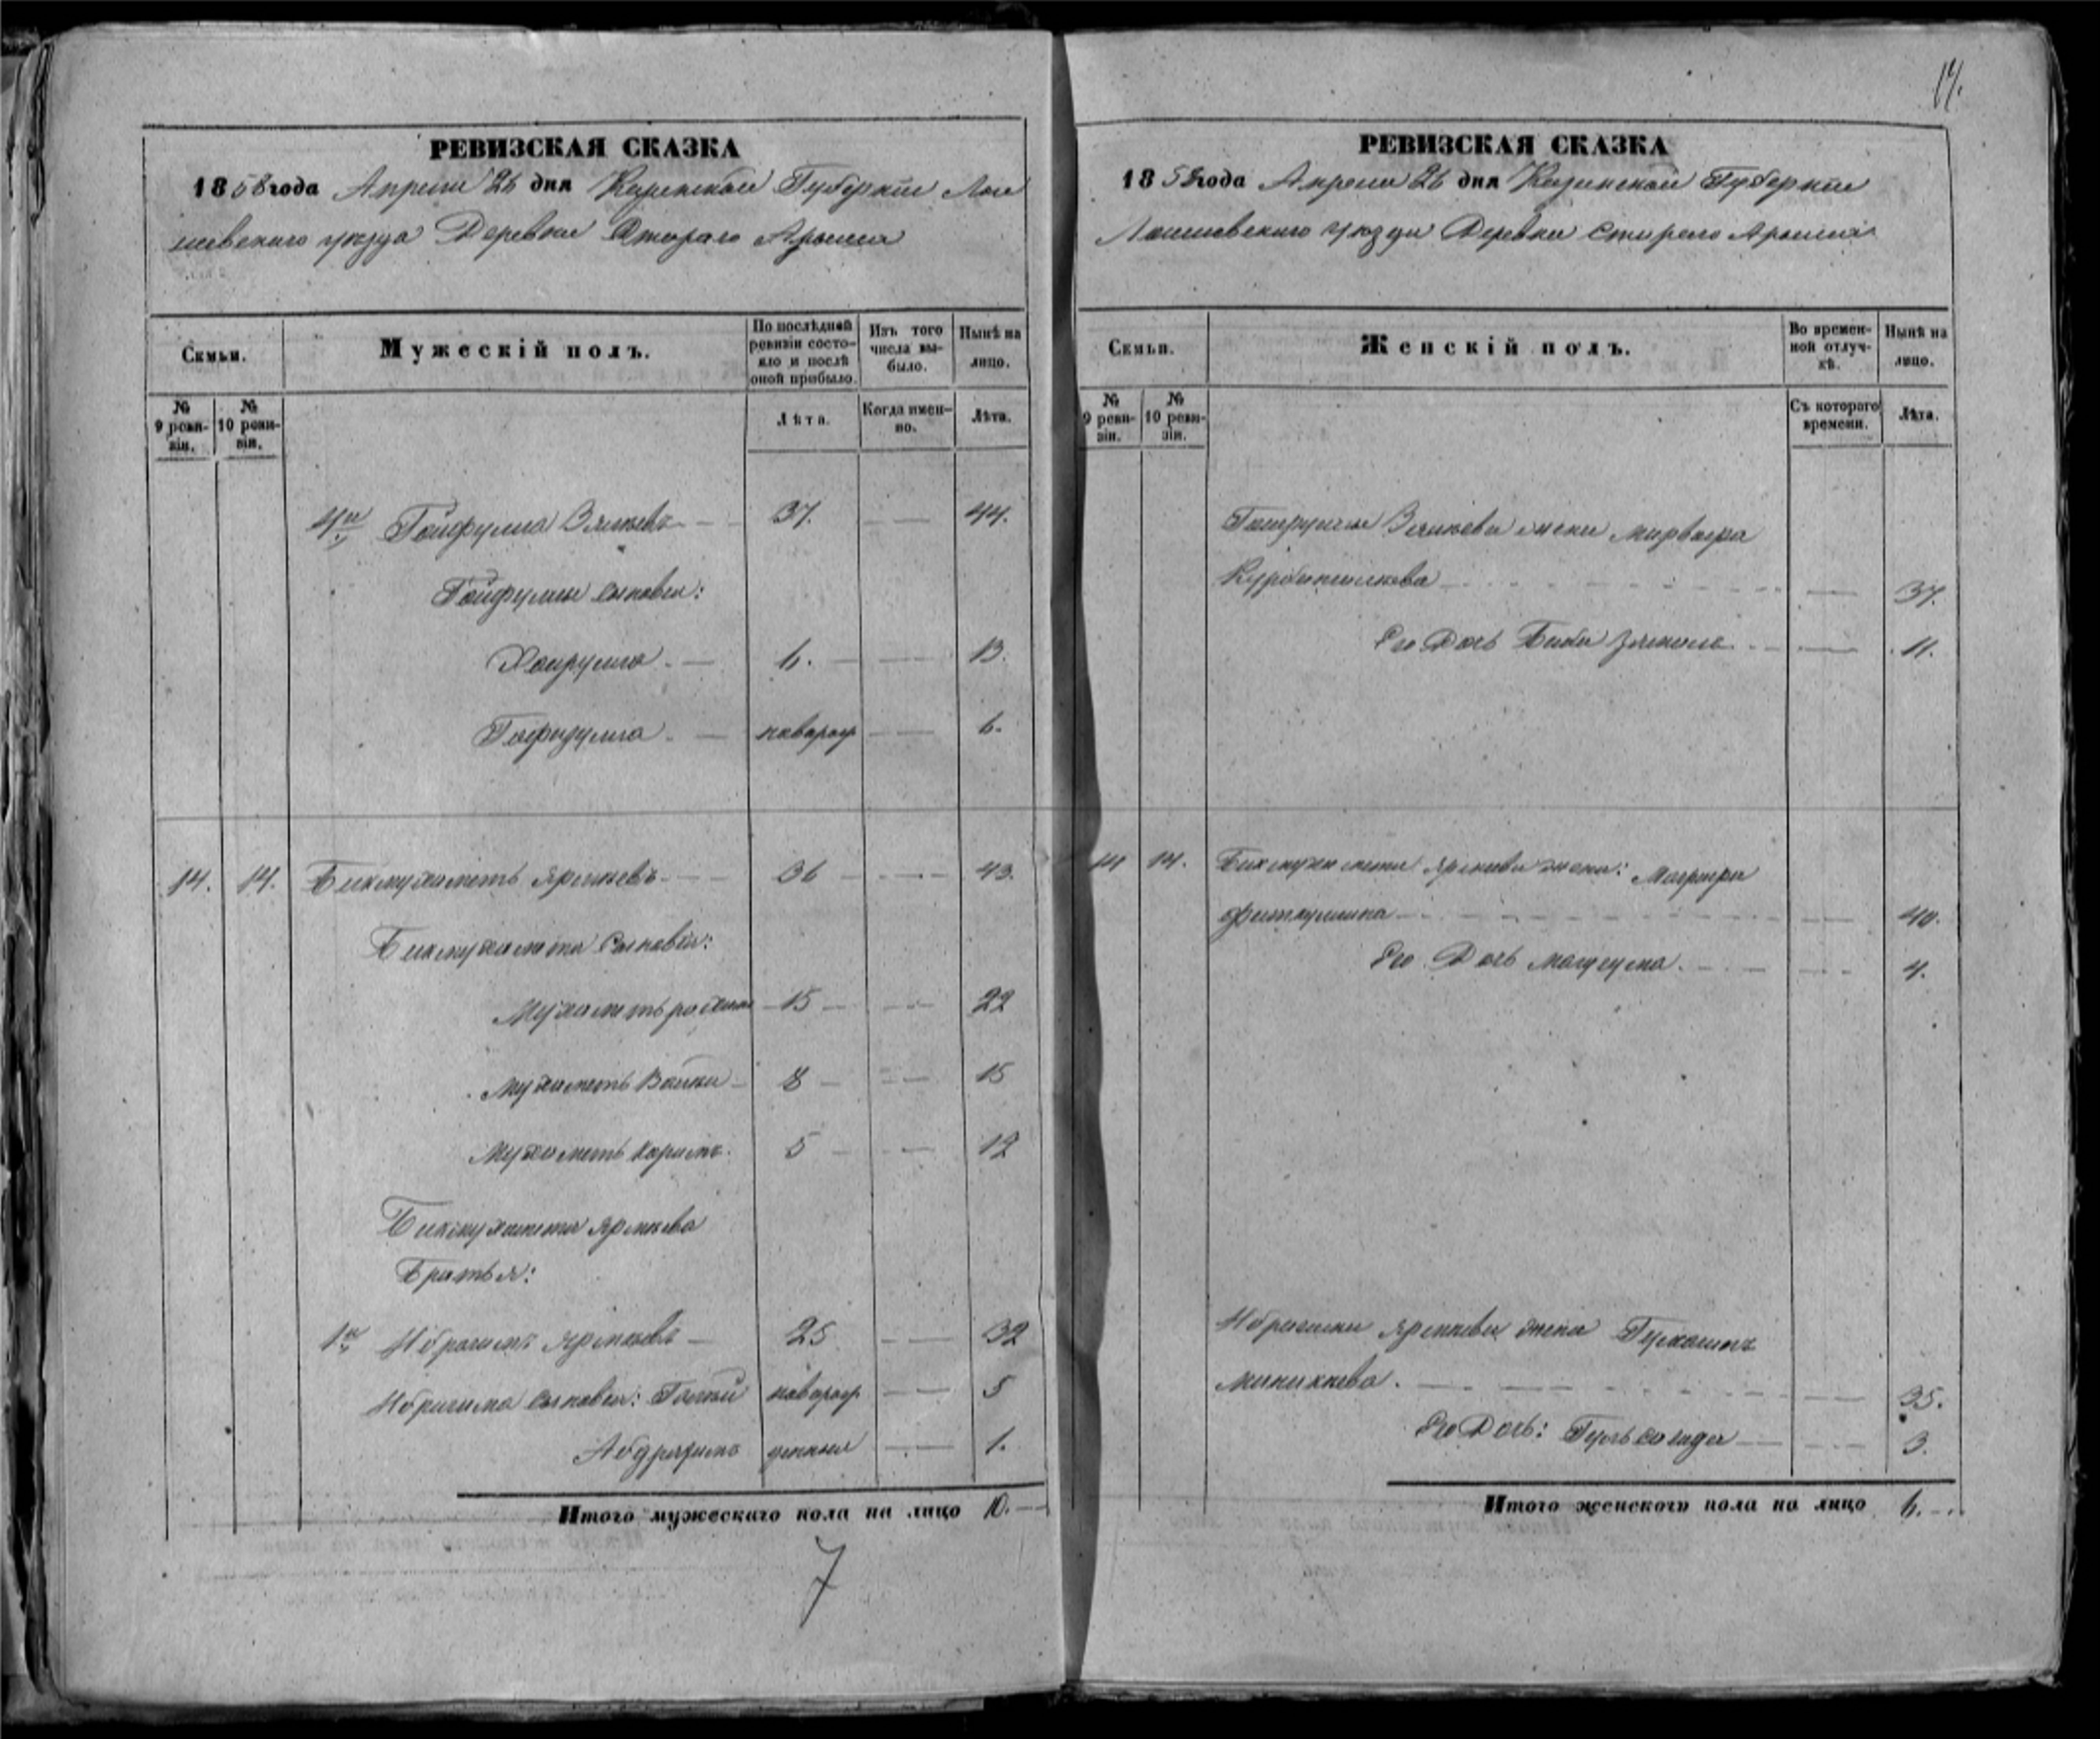 17.
РЕВИЗСКАЯ СКАЗКА
1858 года Апреля 26 дня Казанской Губернiи Лаи
шевскаго уезда Деревни Стараго Арыша
Семьи.
Мужескiй полъ.
По послѣдней ревизiи состояло и послѣ оной прибыло.
Изъ того числа выбыло.
Нынѣ на лицо.
№ 9 ревизiи.
№ 10 ревизiи.
Лѣта.
Когда именно.
Лѣта.
4й Гайфулла Вялиевъ 37. 44.
Гайфуллы сыновья:
Хайрулла 6. 13.
Гафидулла наварож 6.
14. 14. Бикмухаметь Ярмиевъ 36 43.
Бикмухамета Сыновья:
Мухаметь 15 22
Мухаметь Вали 8 15
Мухаметь Каримъ. 5 12
Бикмухамета Ярмиева
Братья:
1й Ибрагимъ Ярмиевъ 25 32
Ибрагима сыновья: наварож 5
1.
Итого мужескаго пола на лицо 10.
7
РЕВИЗСКАЯ СКАЗКА
1858 года Апреля 26 дня Казанской Губернiи
Лаишевскаго Уезда Деревни Стараго Арыша
Семьи.
Женскiй полъ.
Во временной отлучкѣ.
Нынѣ на лицо.
№ 9 ревизiи.
№ 10 ревизiи.
Съ котораго времени.
Лѣта.
Гайфуллы Вялиева жена
37.
Его Дочь Биби 11.
14 14. Бикмухамета Ярмиева жена:
Фаткуллина 40.
Его Дочь 4.
Ибрагима Ярмиева жена
35.
Его Дочь: 3.
Итого женскаго пола на лицо 6.